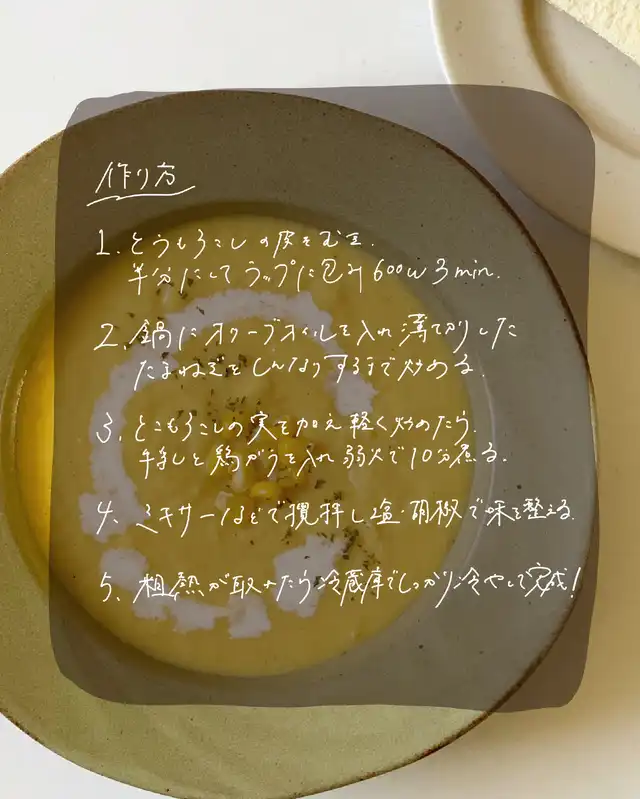 作り方
1. とうもろこしの皮をむき.
半分にしてラップに包み 600w 3min.
2. 鍋にオリーブオイルを入れ薄切りした
たまねぎをしんなりするまで炒める.
3. とこもろこしの実を加え軽く炒めたら.
牛乳と鶏がらを入れ弱火で10分煮る.
4. ミキサーなどで攪拌し塩・胡椒で味を整える.
5. 粗熱が取れたら冷蔵庫でしっかり冷やして完成!